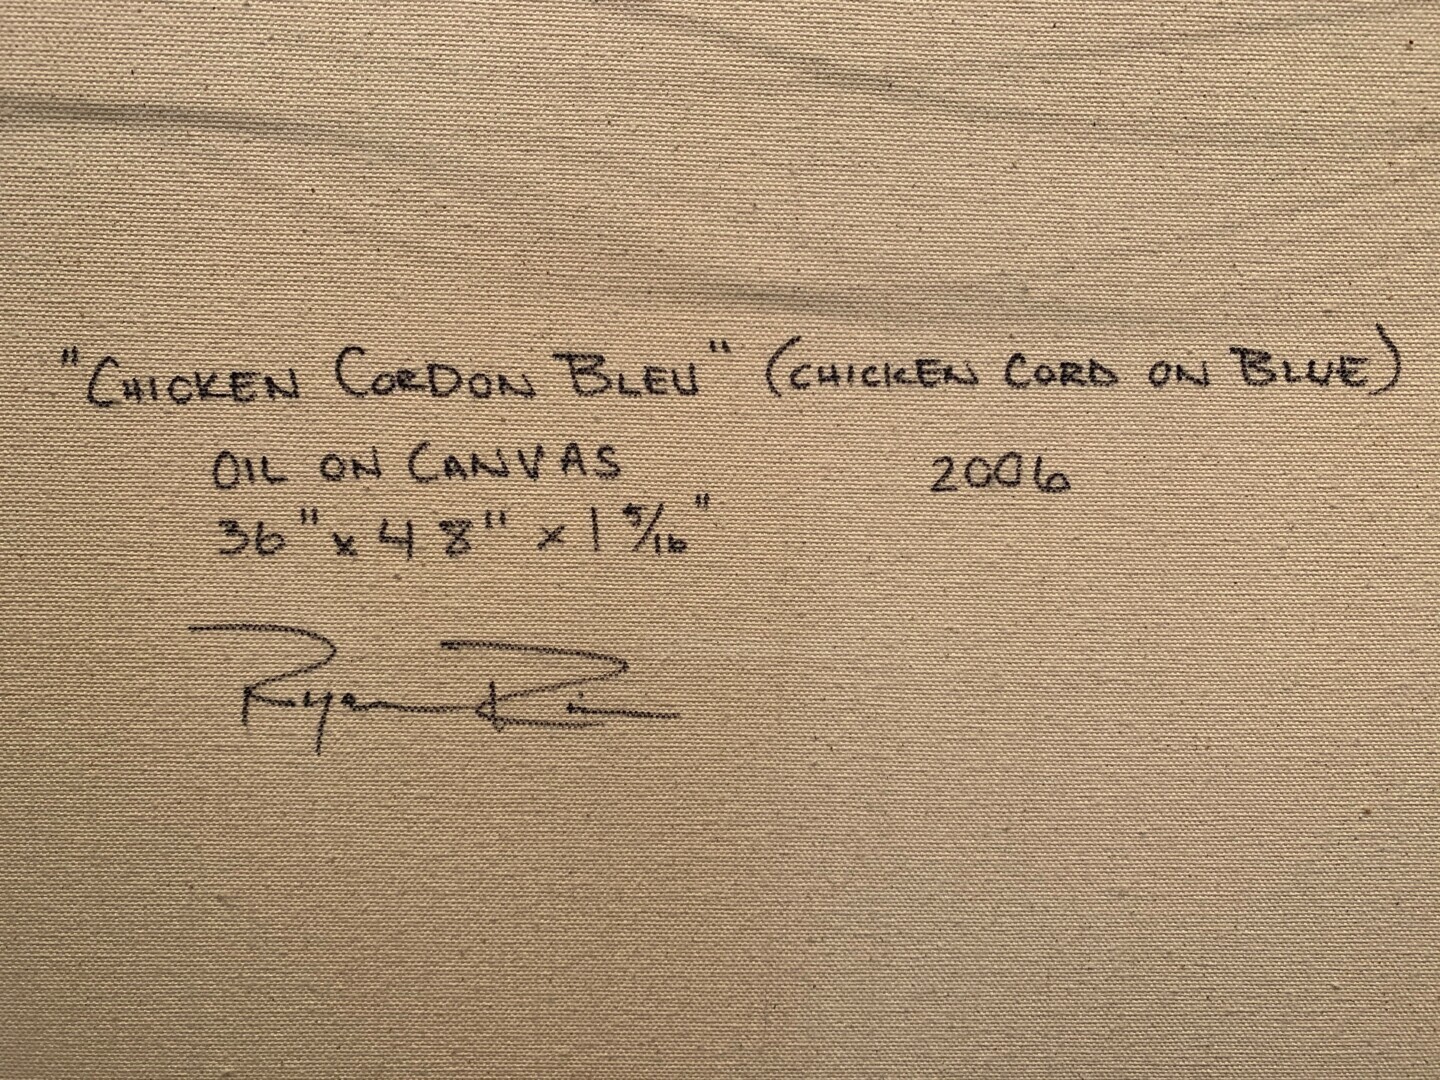 "Chicken Cordon Bleu" (Chicken Cord on Blue)
Oil on Canvas 2006
36" x 48" x 1 5/16"
Ryan